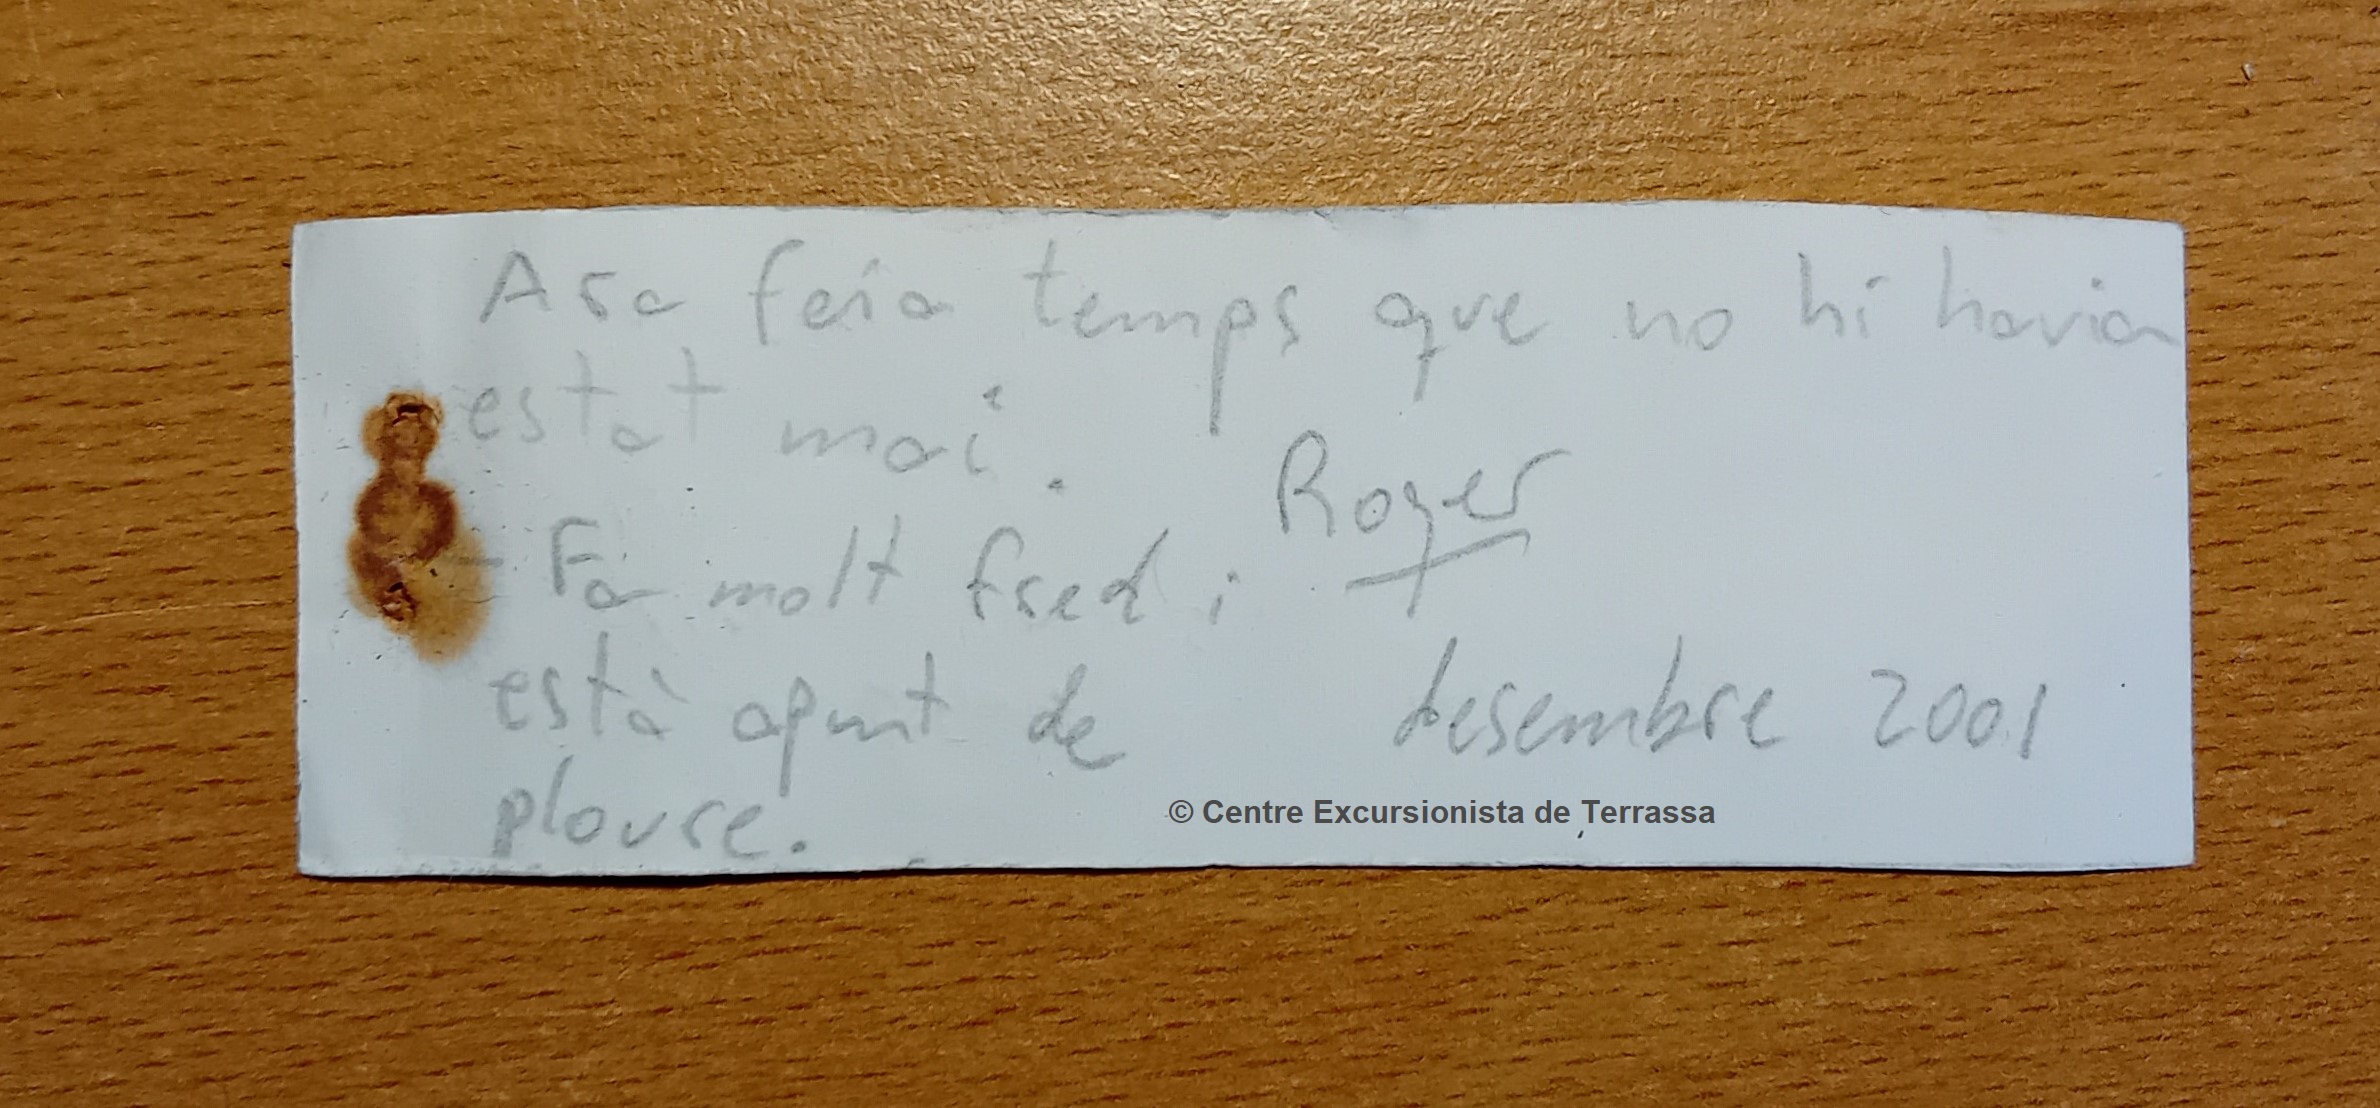 Ara feia temps que no hi havia
estat mai.
Roger
- Fa molt fred i
està apunt de
desembre 2001
ploure.
© Centre Excursionista de Terrassa